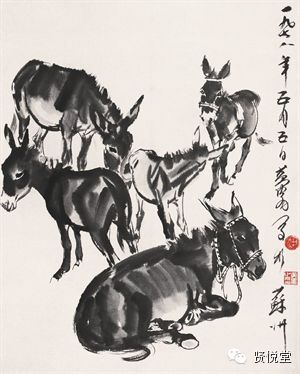 一九七八年五月五日黄胄写于
苏州
贤悦堂